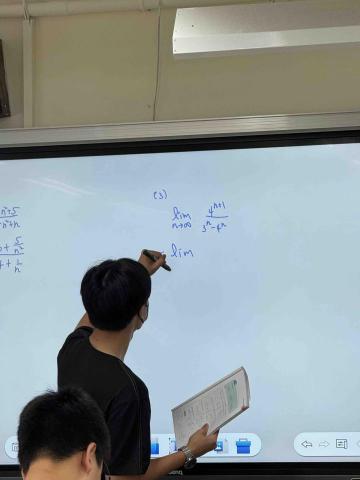 (3)
lim n→∞ 4^{n+1} / 3^n - 4^n
lim
n²+5
n²+n
+ 5/n²